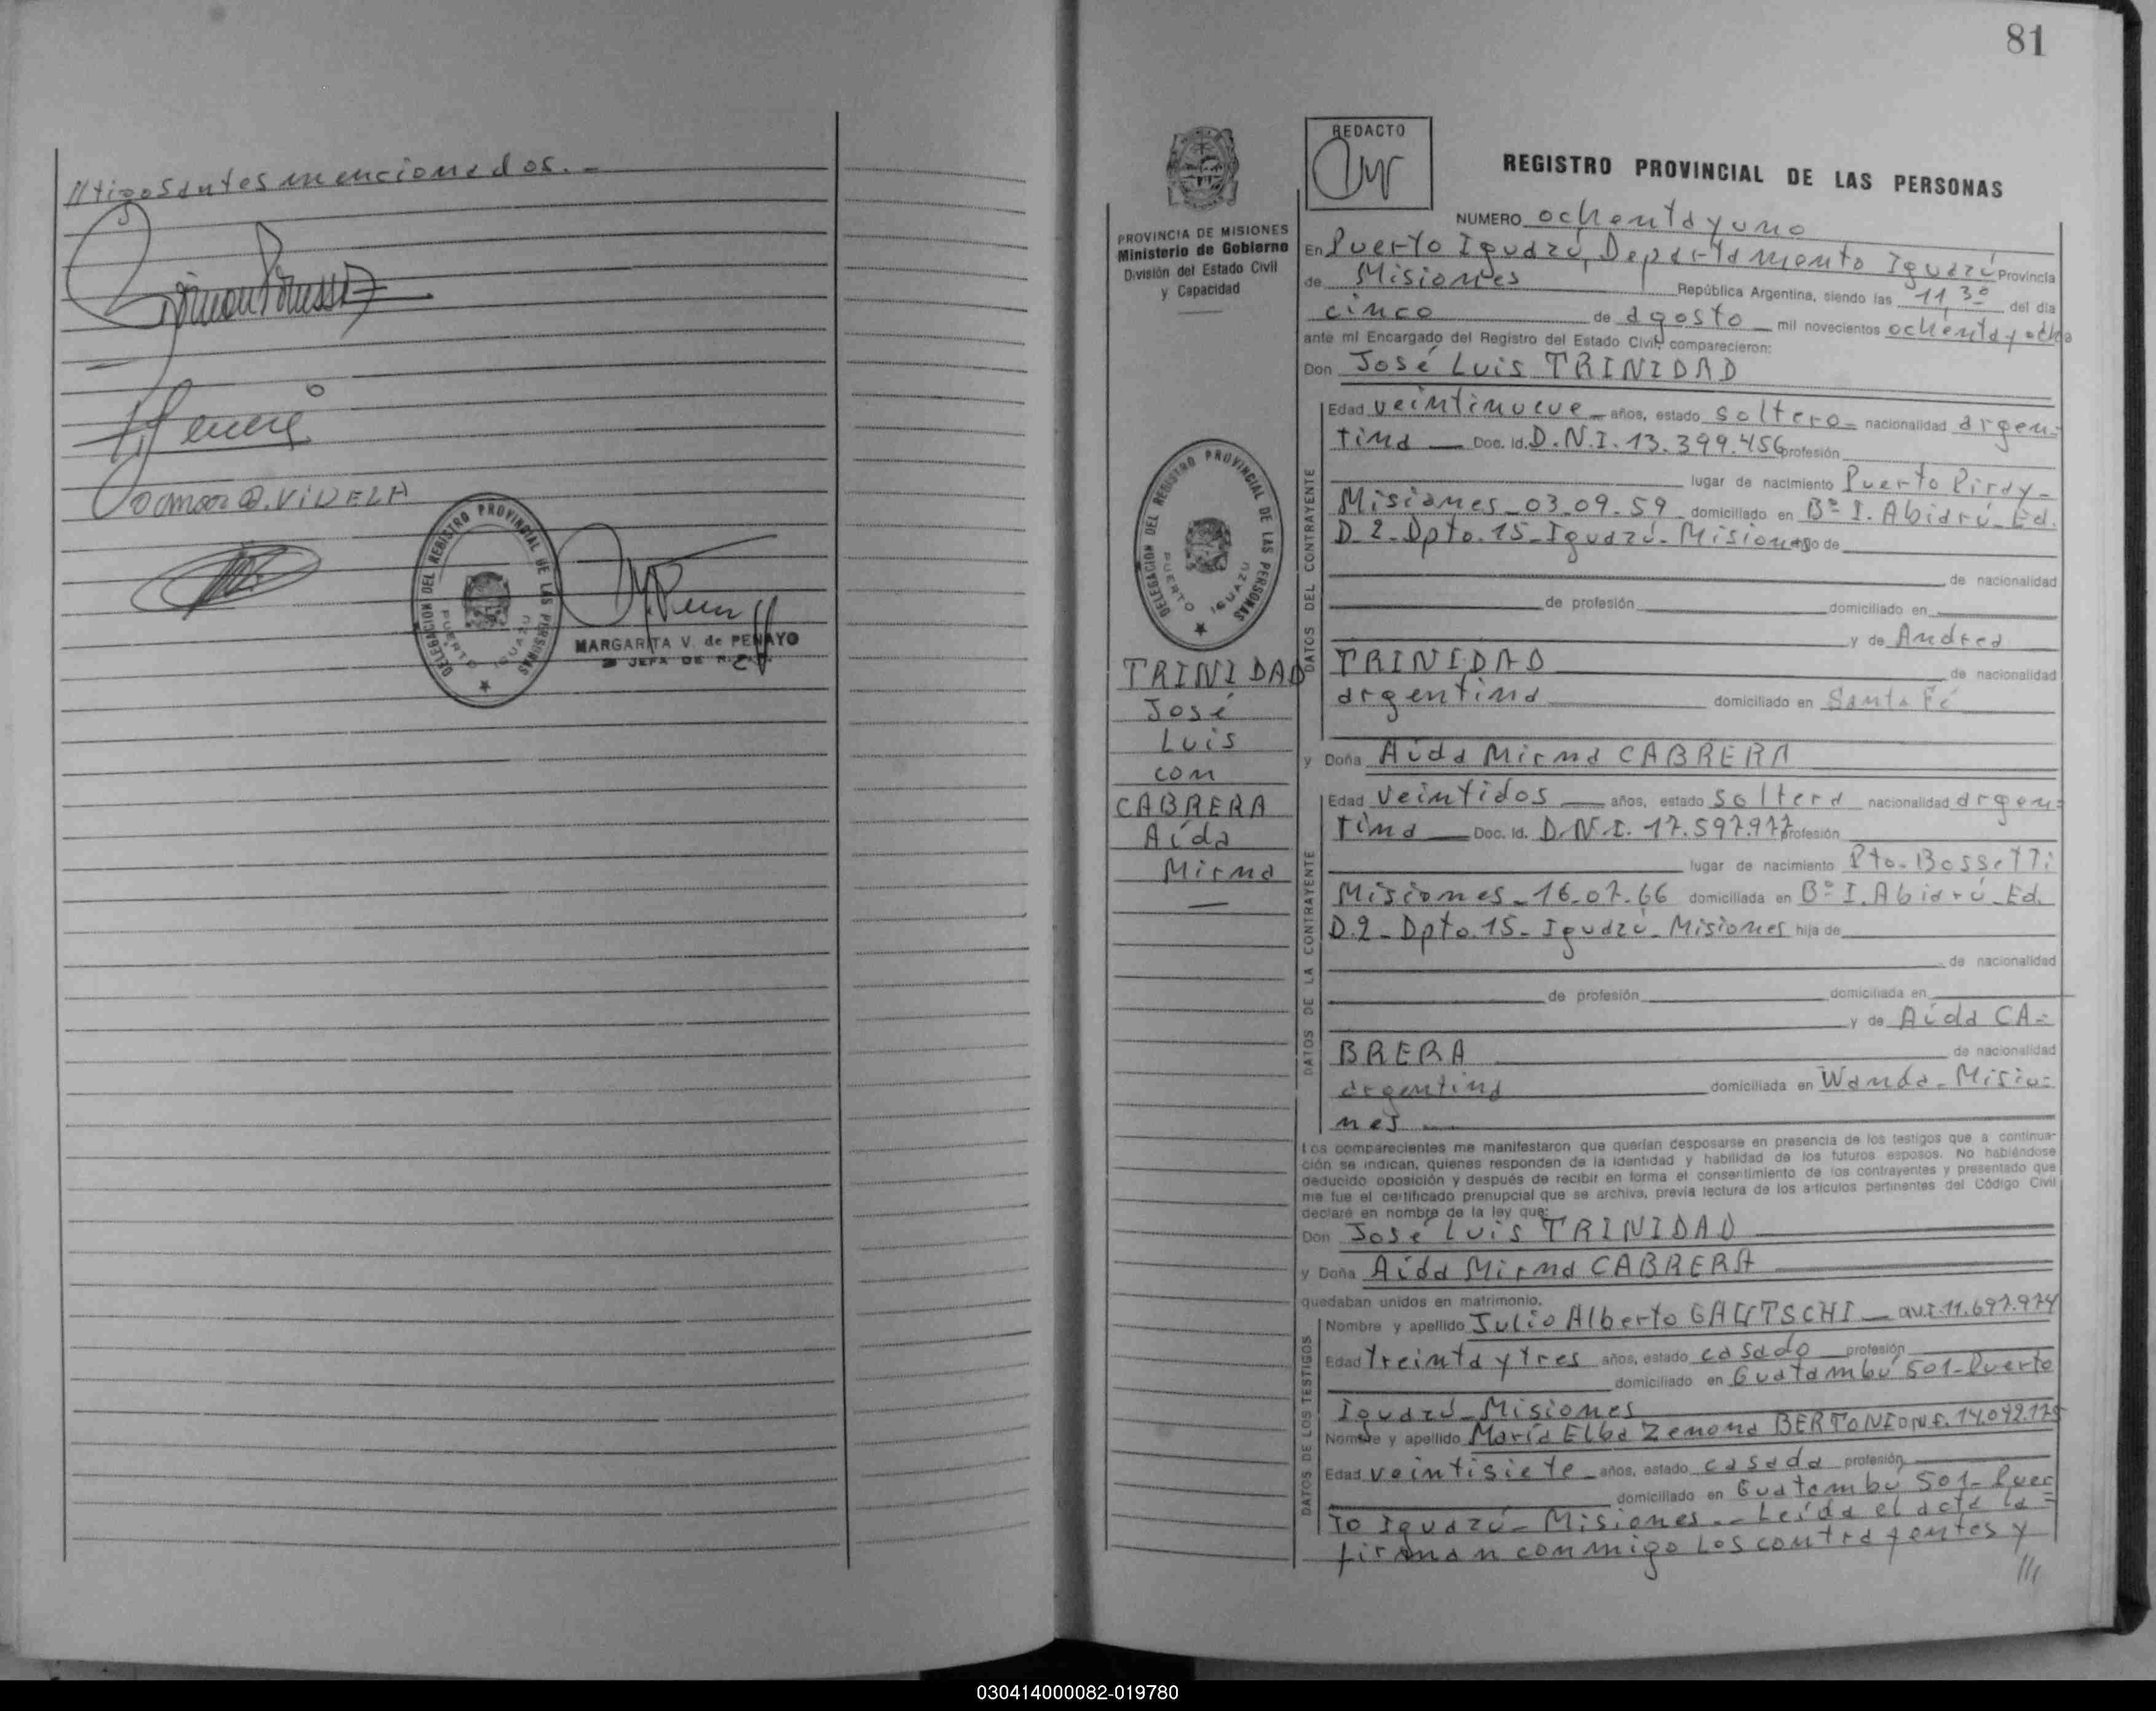 //tigos antes mencionados.-
VIDELA
DELEGACION DEL REGISTRO PROVINCIAL DE LAS PERSONAS
PUERTO IGUAZU
MARGARITA V. de PENAYO
JEFA DE
81
REDACTO
REGISTRO PROVINCIAL DE LAS PERSONAS
PROVINCIA DE MISIONES
Ministerio de Gobierno
División del Estado Civil
y Capacidad
DELEGACION DEL REGISTRO PROVINCIAL DE LAS PERSONAS
PUERTO IGUAZU
TRINIDAD
José
Luis
con
CABRERA
Aída
Mirna
—
NUMERO ochenta y uno
En Puerto Iguazú, Departamento Iguazú Provincia
de Misiones República Argentina, siendo las 11 30 del día
cinco de agosto mil novecientos ochenta y ocho
ante mí Encargado del Registro del Estado Civil, comparecieron:
Don José Luis TRINIDAD
DATOS DEL CONTRAYENTE
Edad veintinueve años, estado soltero nacionalidad argen-
tina Doc. Id. D.N.I. 13.399.456 profesión
lugar de nacimiento Puerto Piray-
Misiones-03-09-59 domiciliado en Bº I. Abidrú-Ed.
D-2-Dpto.15-Iguazú-Misiones hijo de
de nacionalidad
de profesión domiciliado en
y de Andrea
TRINIDAD de nacionalidad
argentina domiciliado en Santa Fé
y Doña Aida Mirna CABRERA
DATOS DE LA CONTRAYENTE
Edad veintidos años, estado soltera nacionalidad argen-
tina Doc. Id. D.N.I. 17.597.977 profesión
lugar de nacimiento Pto. Bossetti
Misiones-16-07-66 domiciliada en Bº I. Abidrú-Ed.
D.2-Dpto.15-Iguazú-Misiones hija de
de nacionalidad
de profesión domiciliada en
y de Aida CA-
BRERA de nacionalidad
argentina domiciliada en Wanda-Misio-
nes
Los comparecientes me manifestaron que querían desposarse en presencia de los testigos que a continua-
ción se indican, quienes responden de la identidad y habilidad de los futuros esposos. No habiéndose
deducido oposición y después de recibir en forma el consentimiento de los contrayentes y presentado que
me fue el certificado prenupcial que se archiva, previa lectura de los artículos pertinentes del Código Civil
declaré en nombre de la ley que:
Don José Luis TRINIDAD
y Doña Aida Mirna CABRERA
quedaban unidos en matrimonio.
DATOS DE LOS TESTIGOS
Nombre y apellido Julio Alberto GAUTSCHI 11.697.974
Edad treinta y tres años, estado casado profesión
domiciliado en Guatambú 501-Puerto
Iguazú-Misiones
Nombre y apellido María Elba Zenona BERTONI 14.092.175
Edad veintisiete años, estado casada profesión
domiciliado en Guatambú 501-Puer
to Iguazú-Misiones.- Leída el acta la
firman conmigo los contrayentes y
///
030414000082-019780